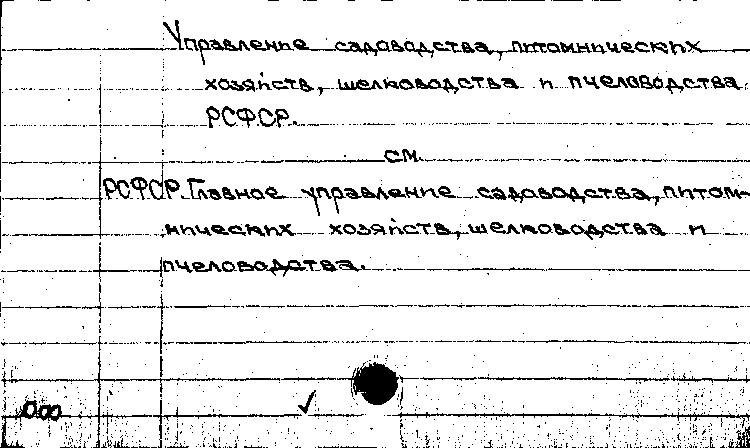 Управление садоводства, питомнических
хозяйств, шелководства и пчеловодства
РСФСР.
см.
РСФСР. Главное управление садоводства, питом-
нических хозяйств, шелководства и
пчеловодства.